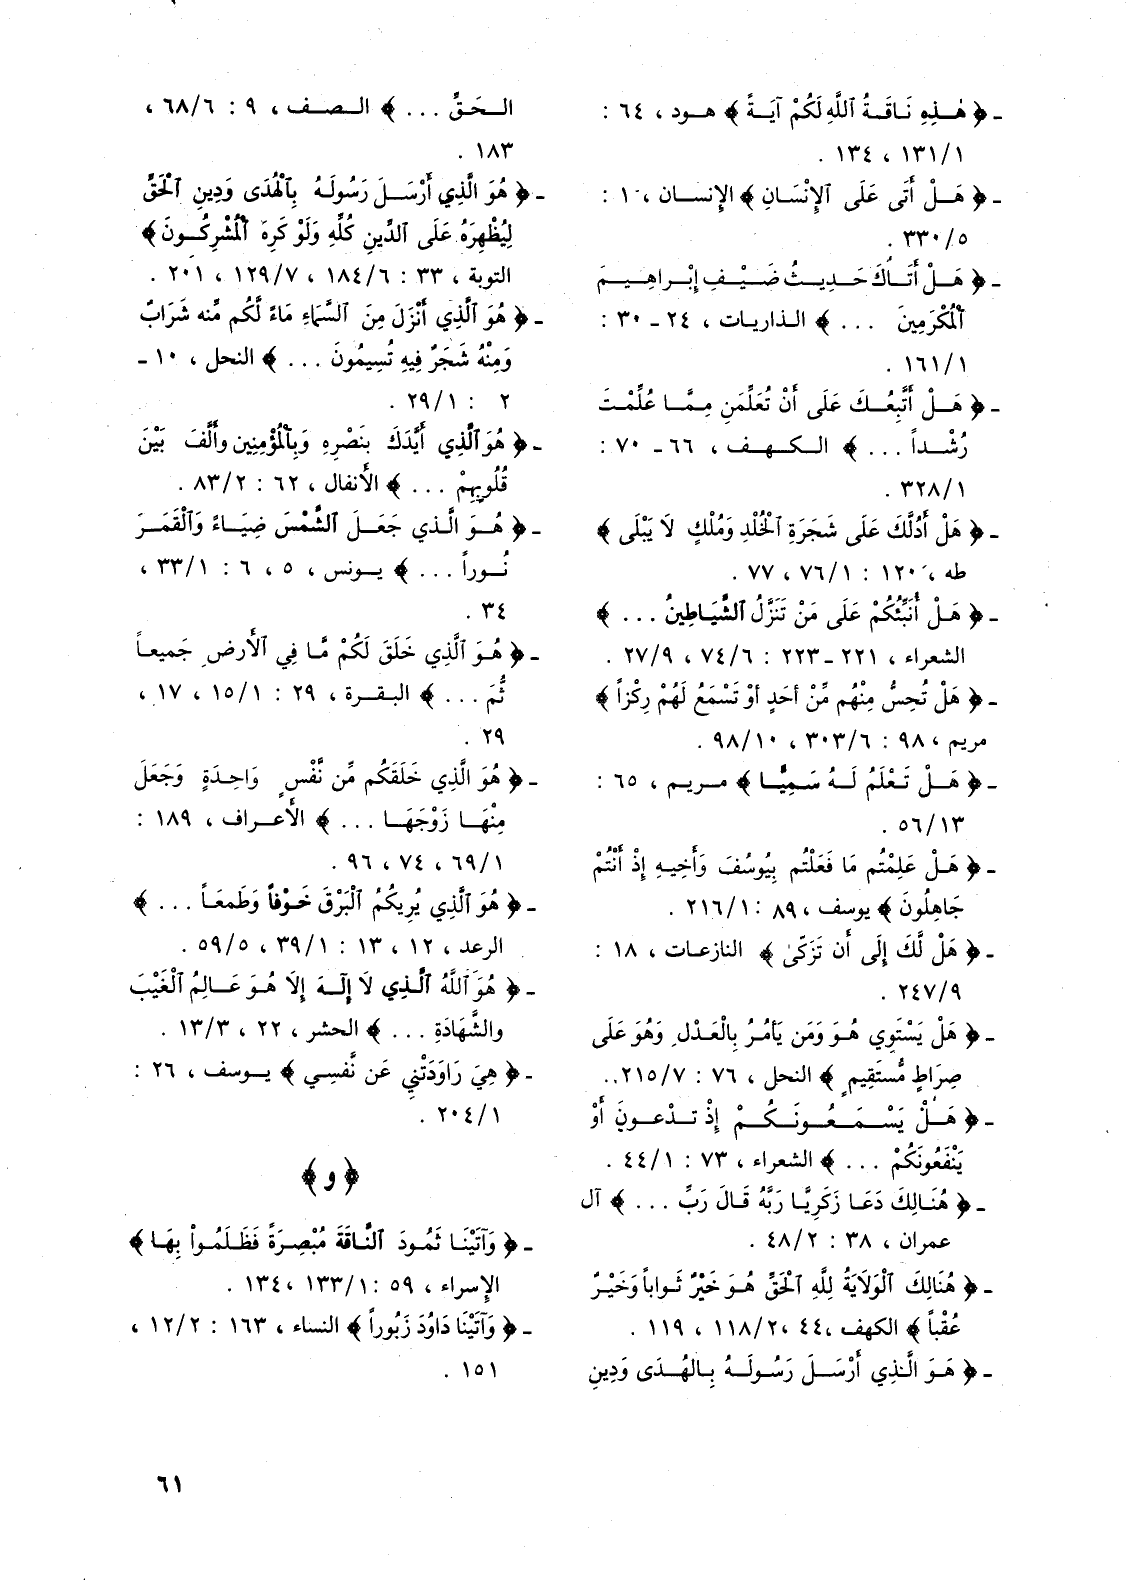 - ﴿ هٰذِهِ نَاقَةُ ٱللَّهِ لَكُمْ آيَةً ﴾ هود ، ٦٤ :
١٣١/١ ، ١٣٤ .
- ﴿ هَلْ أَتَى عَلَى ٱلإِنْسَانِ ﴾ الإنسان ، ١ :
٣٣٠/٥ .
- ﴿ هَلْ أَتَاكَ حَدِيثُ ضَيْفِ إِبْرَاهِيمَ
ٱلْمُكْرَمِينَ ... ﴾ الذاريات ، ٢٤ - ٣٠ :
١٦١/١ .
- ﴿ هَلْ أَتَّبِعُكَ عَلَى أَنْ تُعَلِّمَنِ مِمَّا عُلِّمْتَ
رُشْداً ... ﴾ الكهف ، ٦٦ - ٧٠ :
٣٢٨/١ .
- ﴿ هَلْ أَدُلُّكَ عَلَى شَجَرَةِ ٱلْخُلْدِ وَمُلْكٍ لاَ يَبْلَى ﴾
طه ، ١٢٠ : ٧٦/١ ، ٧٧ .
- ﴿ هَلْ أُنَبِّئُكُمْ عَلَى مَنْ تَنَزَّلُ ٱلشَّيَاطِينُ ... ﴾
الشعراء ، ٢٢١ - ٢٢٣ : ٧٤/٦ ، ٢٧/٩ .
- ﴿ هَلْ تُحِسُّ مِنْهُم مِّنْ أَحَدٍ أوْ تَسْمَعُ لَهُمْ رِكْزاً ﴾
مريم ، ٩٨ : ٣٠٣/٦ ، ٩٨/١٠ .
- ﴿ هَلْ تَعْلَمُ لَهُ سَمِيًّا ﴾ مريم ، ٦٥ :
٥٦/١٣ .
- ﴿ هَلْ عَلِمْتُم مَا فَعَلْتُم بِيُوسُفَ وَأَخِيهِ إِذْ أَنْتُمْ
جَاهِلُونَ ﴾ يوسف ، ٨٩ : ٢١٦/١ .
- ﴿ هَلْ لَّكَ إِلَى أَن تَزَكَّىٰ ﴾ النازعات ، ١٨ :
٢٤٧/٩ .
- ﴿ هَلْ يَسْتَوِي هُوَ وَمَن يَأمُرُ بِالْعَدْلِ وَهُوَ عَلَى
صِرَاطٍ مُّسْتَقِيمٍ ﴾ النحل ، ٧٦ : ٢١٥/٧ ..
- ﴿ هَلْ يَسْمَعُونَكُمْ إِذْ تدْعونَ أَوْ
يَنْفَعُونَكُمْ ... ﴾ الشعراء ، ٧٣ : ٤٤/١ .
- ﴿ هُنَالِكَ دَعَا زَكَرِيَّا رَبَّهُ قَالَ رَبِّ ... ﴾ آل
عمران ، ٣٨ : ٤٨/٢ .
- ﴿ هُنَالِكَ ٱلْوَلاَيَةُ لِلَّهِ ٱلْحَقِّ هُوَ خَيْرٌ ثَواباً وَخَيْرٌ
عُقْباً ﴾ الكهف ، ٤٤ ، ١١٨/٢ ، ١١٩ .
- ﴿ هَوَ الَّذِي أَرْسَلَ رَسُولَهُ بِالهُدَى وَدِينِ
الحَقِّ ... ﴾ الصف ، ٩ : ٦٨/٦ ،
١٨٣ .
- ﴿ هُوَ الَّذِي أَرْسَلَ رَسُولَهُ بِٱلْهُدَى وَدِينِ ٱلْحَقِّ
لِيُظْهِرَهُ عَلَى ٱلدِّينِ كُلِّهِ وَلَوْ كَرِهَ ٱلْمُشْرِكُونَ ﴾
التوبة ، ٣٣ : ١٨٤/٦ ، ١٢٩/٧ ، ٢٠١ .
- ﴿ هُوَ ٱلَّذِي أَنْزَلَ مِنَ ٱلسَّمَاءِ مَاءً لَّكُم مِّنه شَرَابٌ
وَمِنْهُ شَجَرٌ فِيهِ تُسِيمُونَ ... ﴾ النحل ، ١٠ -
٢ : ٢٩/١ .
- ﴿ هُوَ ٱلَّذِي أَيَّدَكَ بِنَصْرِهِ وَبِٱلْمُؤْمِنِينَ وأَلَّفَ بَيْنَ
قُلُوبِهِمْ ... ﴾ الأنفال ، ٦٢ : ٨٣/٢ .
- ﴿ هُوَ الَّذي جَعَلَ ٱلشَّمْسَ ضِيَاءً وَٱلْقَمَرَ
نُوراً ... ﴾ يونس ، ٥ ، ٦ : ٣٣/١ ،
٣٤ .
- ﴿ هُوَ ٱلَّذِي خَلَقَ لَكُمْ مَّا فِي ٱلأَرضِ جَمِيعاً
ثُمَ ... ﴾ البقرة ، ٢٩ : ١٥/١ ، ١٧ ،
٢٩ .
- ﴿ هُوَ الَّذِي خَلَقَكُم مِّن نَّفْسٍ وَاحِدَةٍ وَجَعَلَ
مِنْهَا زَوْجَهَا ... ﴾ الأعراف ، ١٨٩ :
٦٩/١ ، ٧٤ ، ٩٦ .
- ﴿ هُوَ ٱلَّذِي يُرِيكُمُ ٱلْبَرْقَ خَوْفاً وَطَمَعَاً ... ﴾
الرعد ، ١٢ ، ١٣ : ٣٩/١ ، ٥٩/٥ .
- ﴿ هُوَ ٱللَّهُ ٱلَّذِي لاَ إِلَهَ إِلاَ هُوَ عَالِمُ ٱلْغَيْبَ
والشَّهَادَةِ ... ﴾ الحشر ، ٢٢ ، ١٣/٣ .
- ﴿ هِيَ رَاوَدَتْنِي عَن نَّفْسِي ﴾ يوسف ، ٢٦ :
٢٠٤/١ .
﴿ و ﴾
- ﴿ وَآتَيْنَا ثَمُودَ ٱلنَّاقَةَ مُبْصِرَةً فَظَلَمُواْ بِهَا ﴾
الإسراء ، ٥٩ : ١٣٣/١ ، ١٣٤ .
- ﴿ وَآتَيْنَا دَاوُدَ زَبُوراً ﴾ النساء ، ١٦٣ : ١٢/٢ ،
١٥١ .
٦١